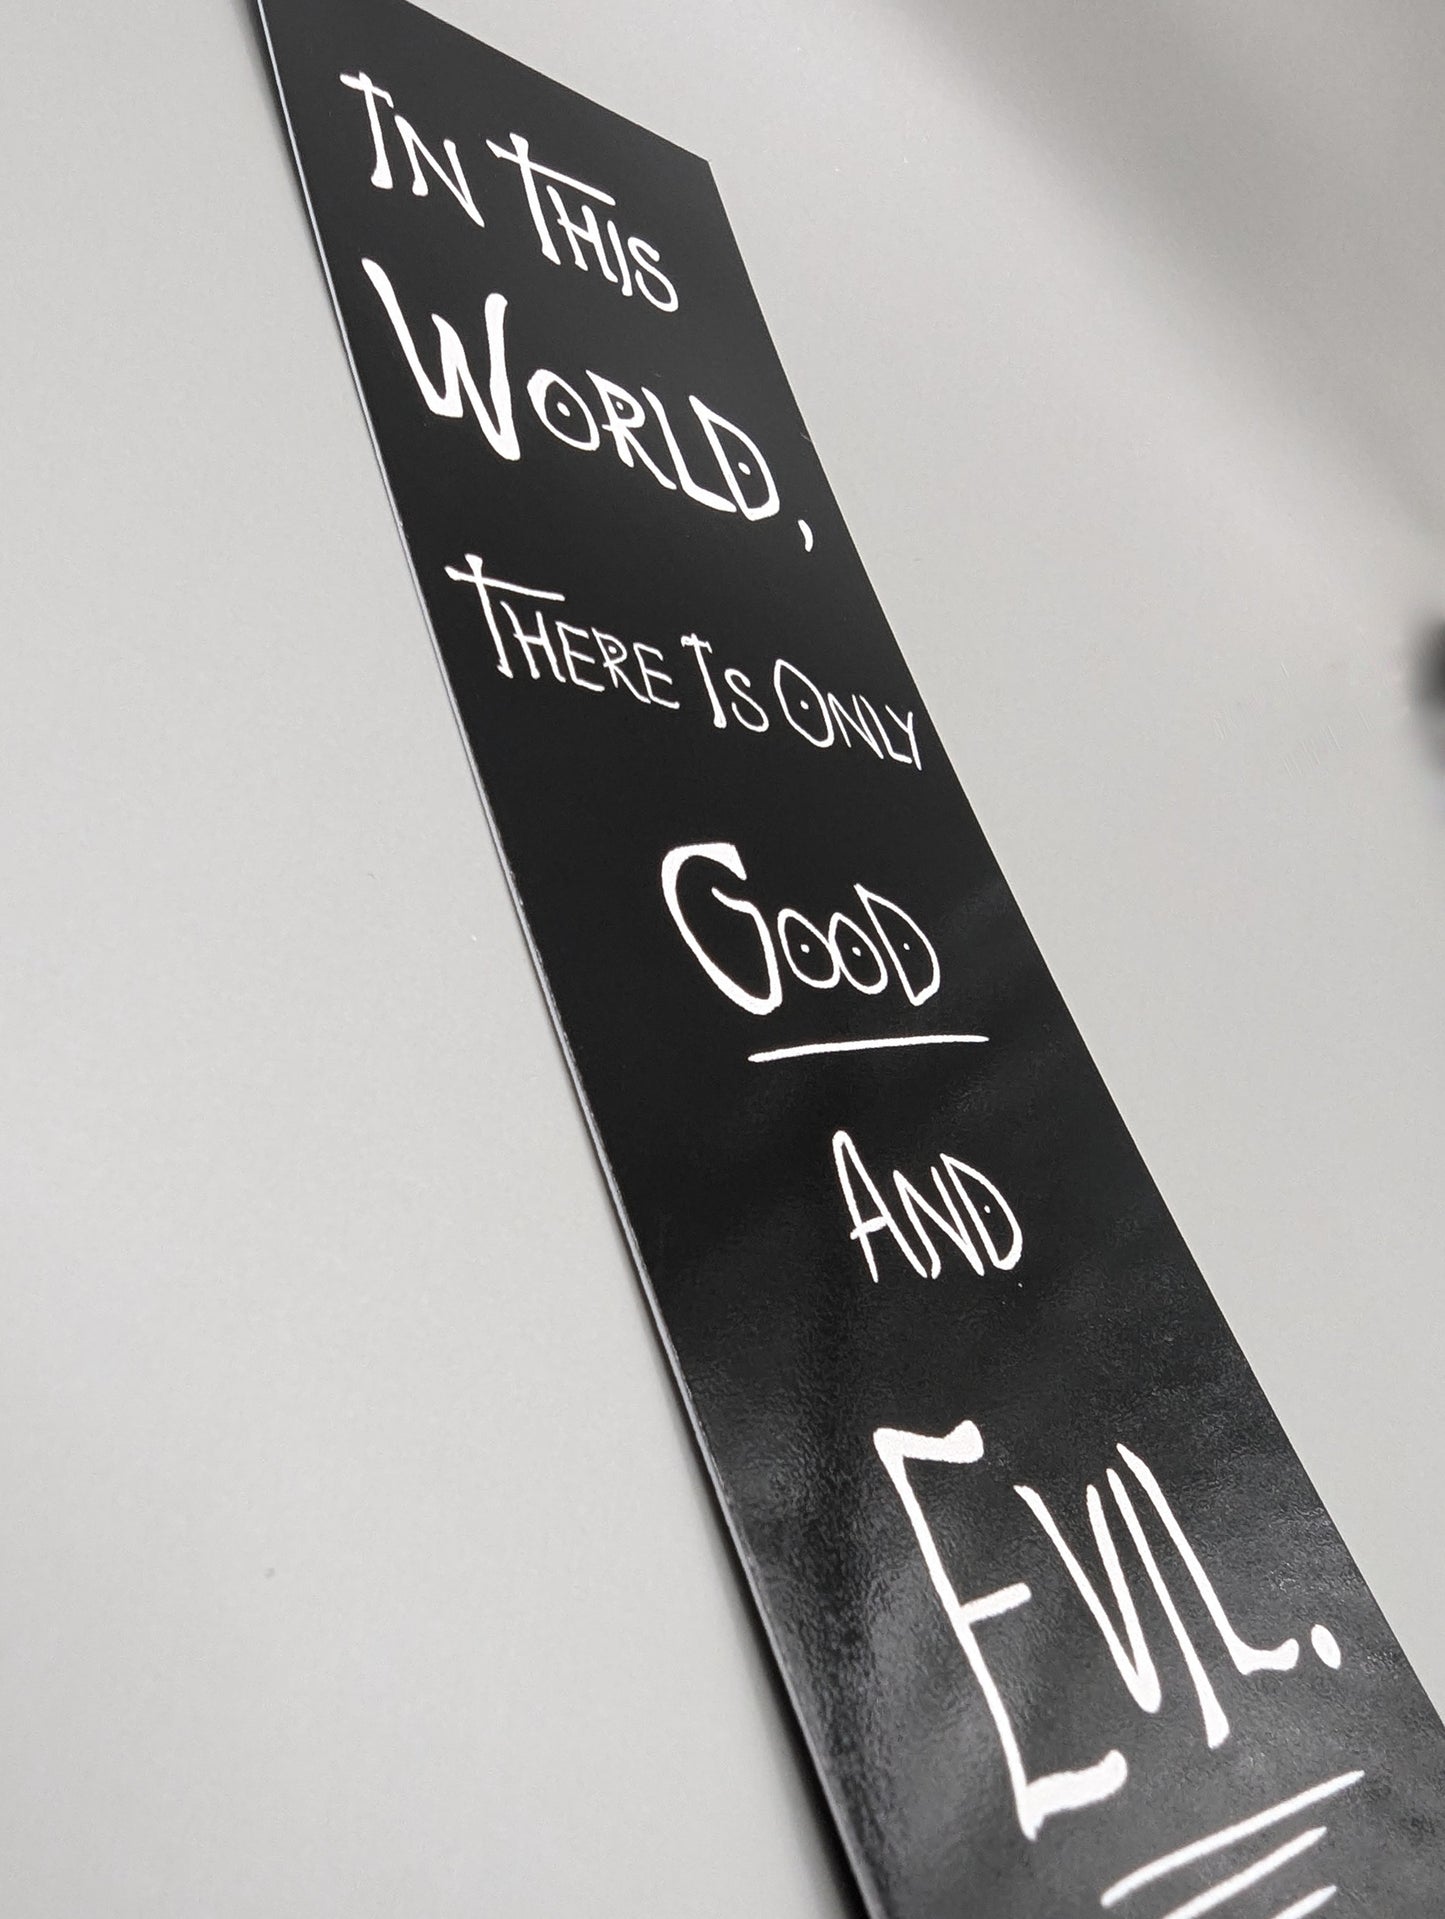 In This
World,
There Is Only
Good
And
Evil.